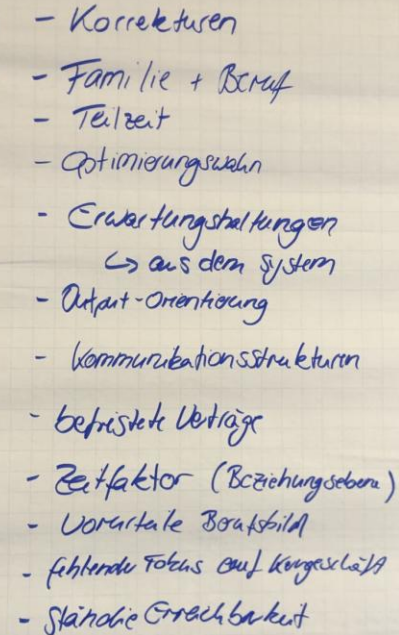 - Korrekturen
- Familie + Beruf
- Teilzeit
- Optimierungswahn
- Erwartungshaltungen
↳ aus dem System
- Output-Orientierung
- Kommunikationsstrukturen
- befristete Verträge
- Zeitfaktor (Beziehungsebene)
- Vorurteile Berufsbild
- fehlender Fokus auf Kerngeschäft
- ständige Erreichbarkeit